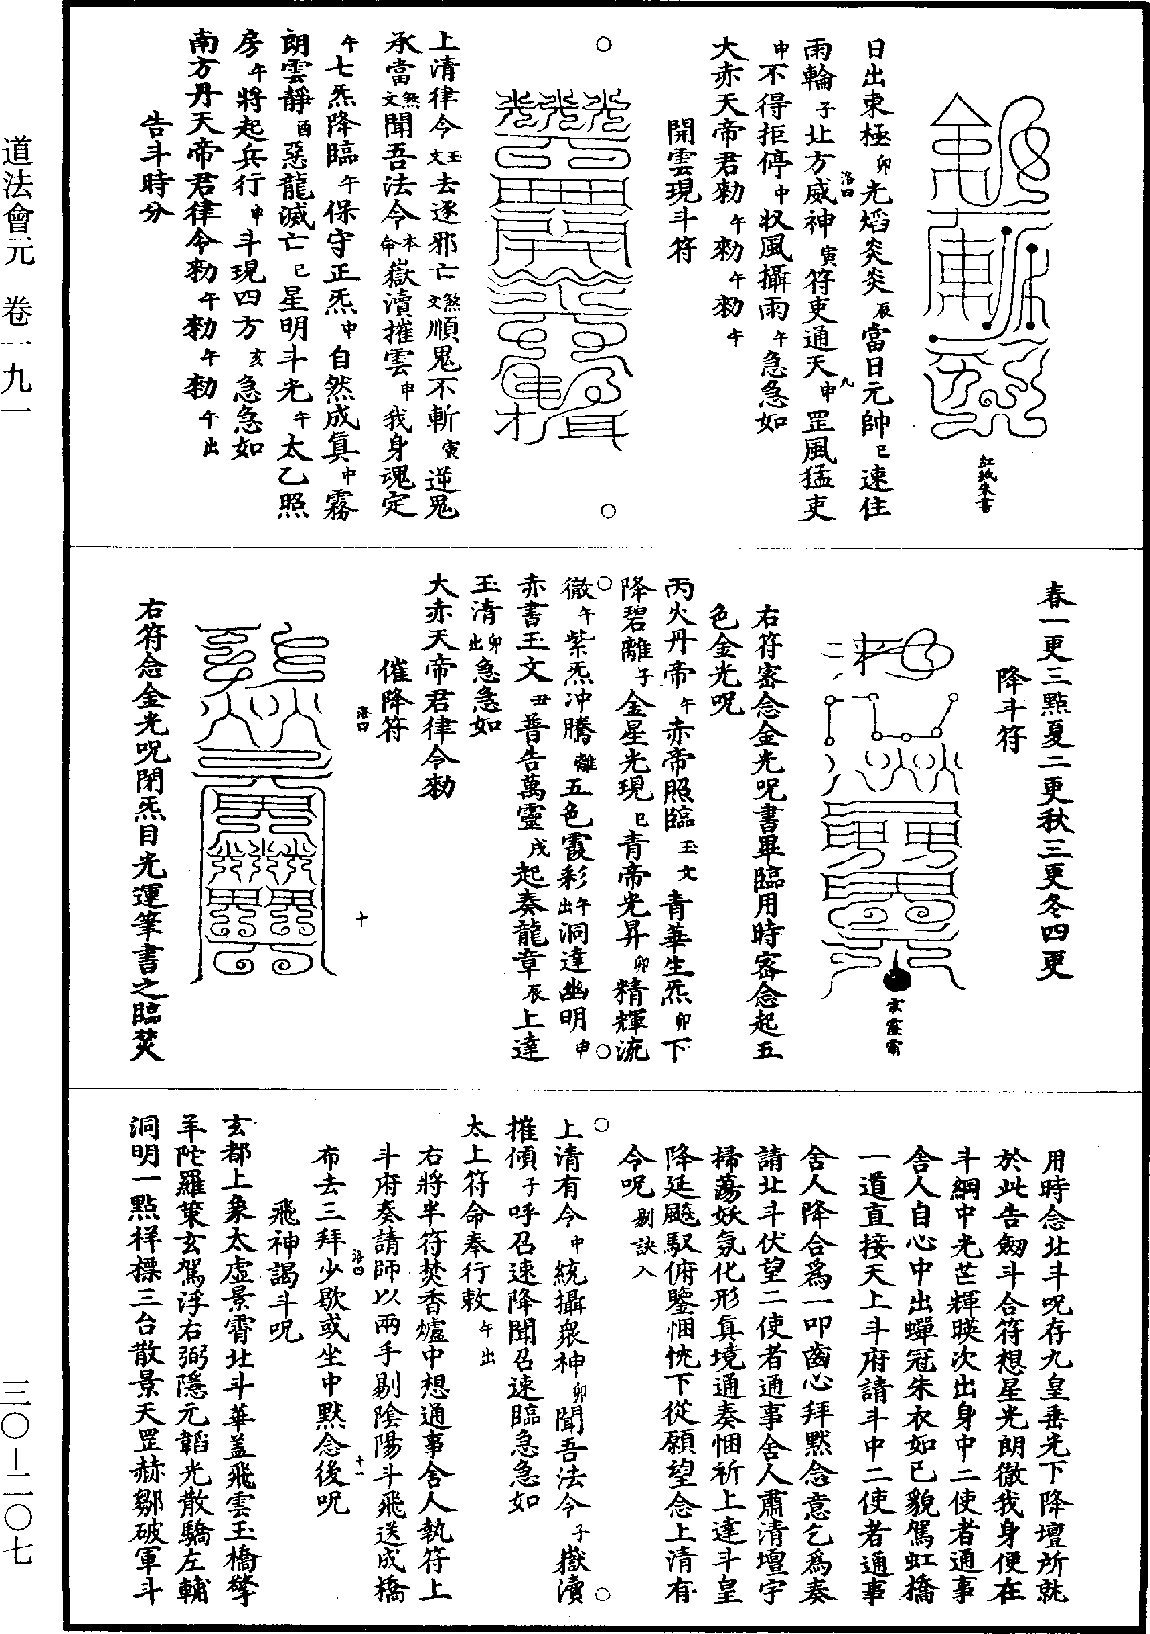 道法會元 卷一九一
三〇—二〇七
紅紙朱書
日出東極卯光熖炎炎辰當日元帥巳速往
雨輪子北方威神寅符吏通天申罡風猛吏
申不得拒停中收風攝雨午急急如
大赤天帝君勑午勑午勑午
開雲現斗符
上清律令玉文去逐邪亡煞文順鬼不斬寅逆鬼
承當煞文聞吾法令本命嶽瀆摧雲申我身魂定
午七炁降臨午保守正炁中自然成真中霧
朗雲靜酉惡龍滅亡巳星明斗光午太乙照
房午將起兵行申斗現四方亥急急如
南方丹天帝君律令勑午勑午勑午出
告斗時分
春一更三點夏二更秋三更冬四更
降斗符
右符密念金光呪書畢臨用時密念起五
色金光呪
丙火丹帝午赤帝照臨玉文青華生炁卯下
降碧離子金星光現巳青帝光昇卯精輝流
徹午紫炁冲騰離五色霞彩午出洞達幽明申
赤書玉文丑普告萬靈戌起奏龍章辰上達
玉清卯出急急如
大赤天帝君律令勑
催降符
十
右符念金光呪閉炁目光運筆書之臨焚
用時念北斗呪存九皇垂光下降壇所就
於此告劔斗合符想星光朗徹我身便在
斗綱中光芒輝暎次出身中二使者通事
舍人自心中出蟬冠朱衣如已貌駕虹橋
一道直接天上斗府請斗中二使者通事
舍人降合爲一叩齒心拜默念意乞爲奏
請北斗伏望二使者通事舍人肅清壇宇
掃蕩妖氛化形真境通奏悃祈上達斗皇
降延飈馭俯鑒悃忱下從願望念上清有
令呪剔訣入
上清有令中統攝衆神卯聞吾法令子嶽瀆
摧傾子呼召速降聞召速臨急急如
太上符命奉行敕午出
右將半符焚香爐中想通事舍人執符上
斗府奏請師以兩手剔陰陽斗飛送成橋
布去三拜少歇或坐中默念後呪
十一
飛神謁斗呪
玄都上象太虛景霄北斗華蓋飛雲玉橋擎
羊陀羅策玄駕浮右弼隱元韜光散驕左輔
洞明一點祥摽三台散景天罡赫鄒破軍斗